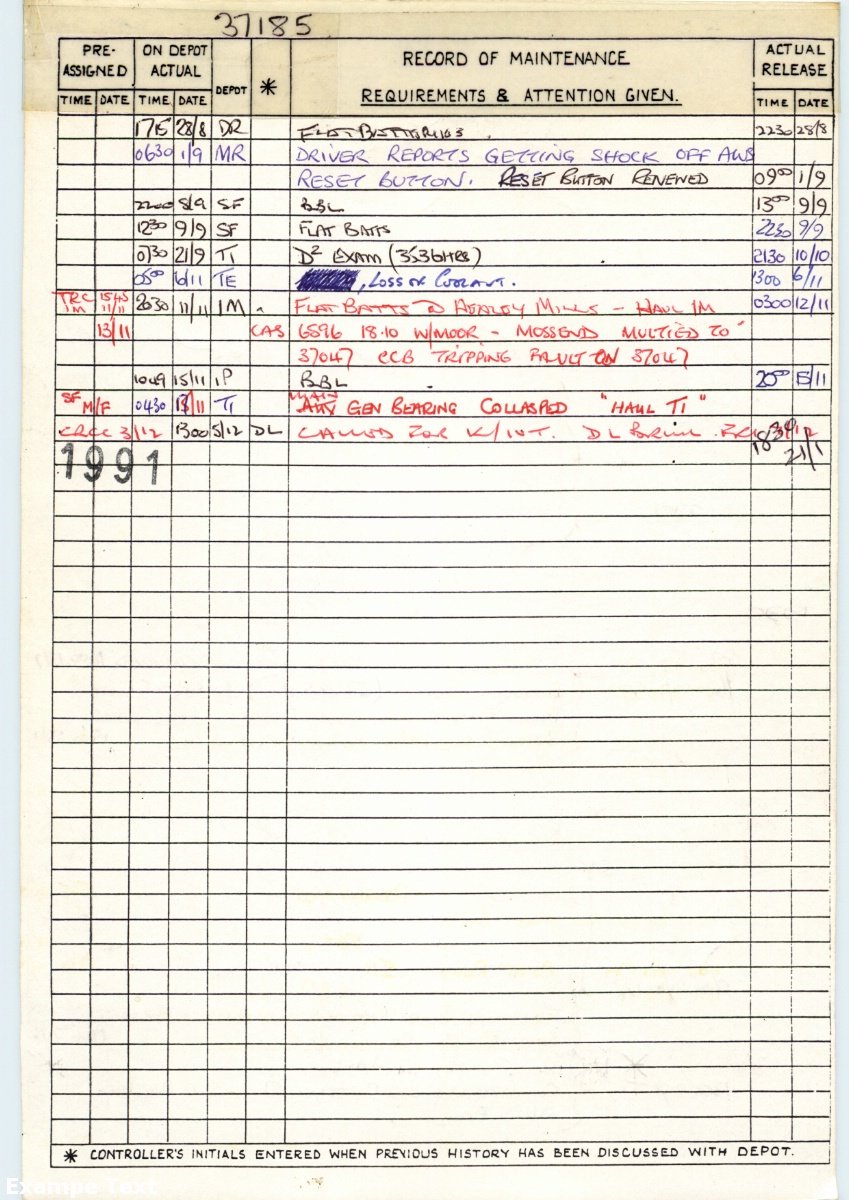 37185
PRE-ASSIGNED ON DEPOT ACTUAL DEPOT * RECORD OF MAINTENANCE REQUIREMENTS & ATTENTION GIVEN. ACTUAL RELEASE
TIME DATE TIME DATE TIME DATE
1715 28/8 DR FLAT BATTERIES . 2230 28/8
0630 1/9 MR DRIVER REPORTS GETTING SHOCK OFF AWS
RESET BUTTON. RESET BUTTON RENEWED 0900 1/9
2200 8/9 SF BBL 1300 9/9
1230 9/9 SF FLAT BATTS 2230 9/9
0730 21/9 TI D2 EXAM (3536HRS) 2130 10/10
0500 6/11 TE , LOSS OF COOLANT. 1300 6/11
TRC IM 1545 11/11 2030 11/11 IM FLAT BATTS @ HEALEY MILLS - HAUL IM 0300 12/11
13/11 CAS 6S96 18.10 W/MOOR - MOSSEND MULTIED TO
37047 CCB TRIPPING FAULT ON 37047
1049 15/11 IP BBL 2000 15/11
SF M/F 0430 /11 TI MAIN AUX GEN BEARING COLLASPED "HAUL TI"
3/12 1300 5/12 DL DL 1830
1991 21/1
* CONTROLLER'S INITIALS ENTERED WHEN PREVIOUS HISTORY HAS BEEN DISCUSSED WITH DEPOT.
Exampe Text